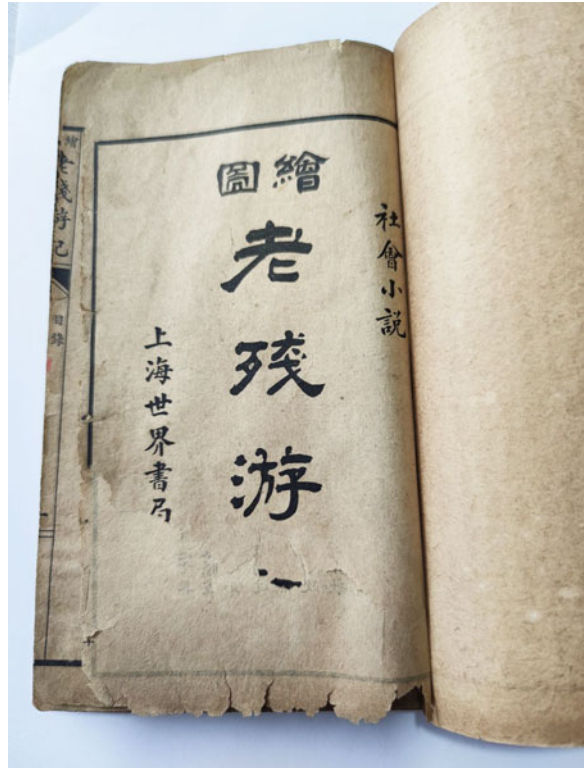 社會小説
繪圖
老殘游
上海世界書局
老殘游記
目錄